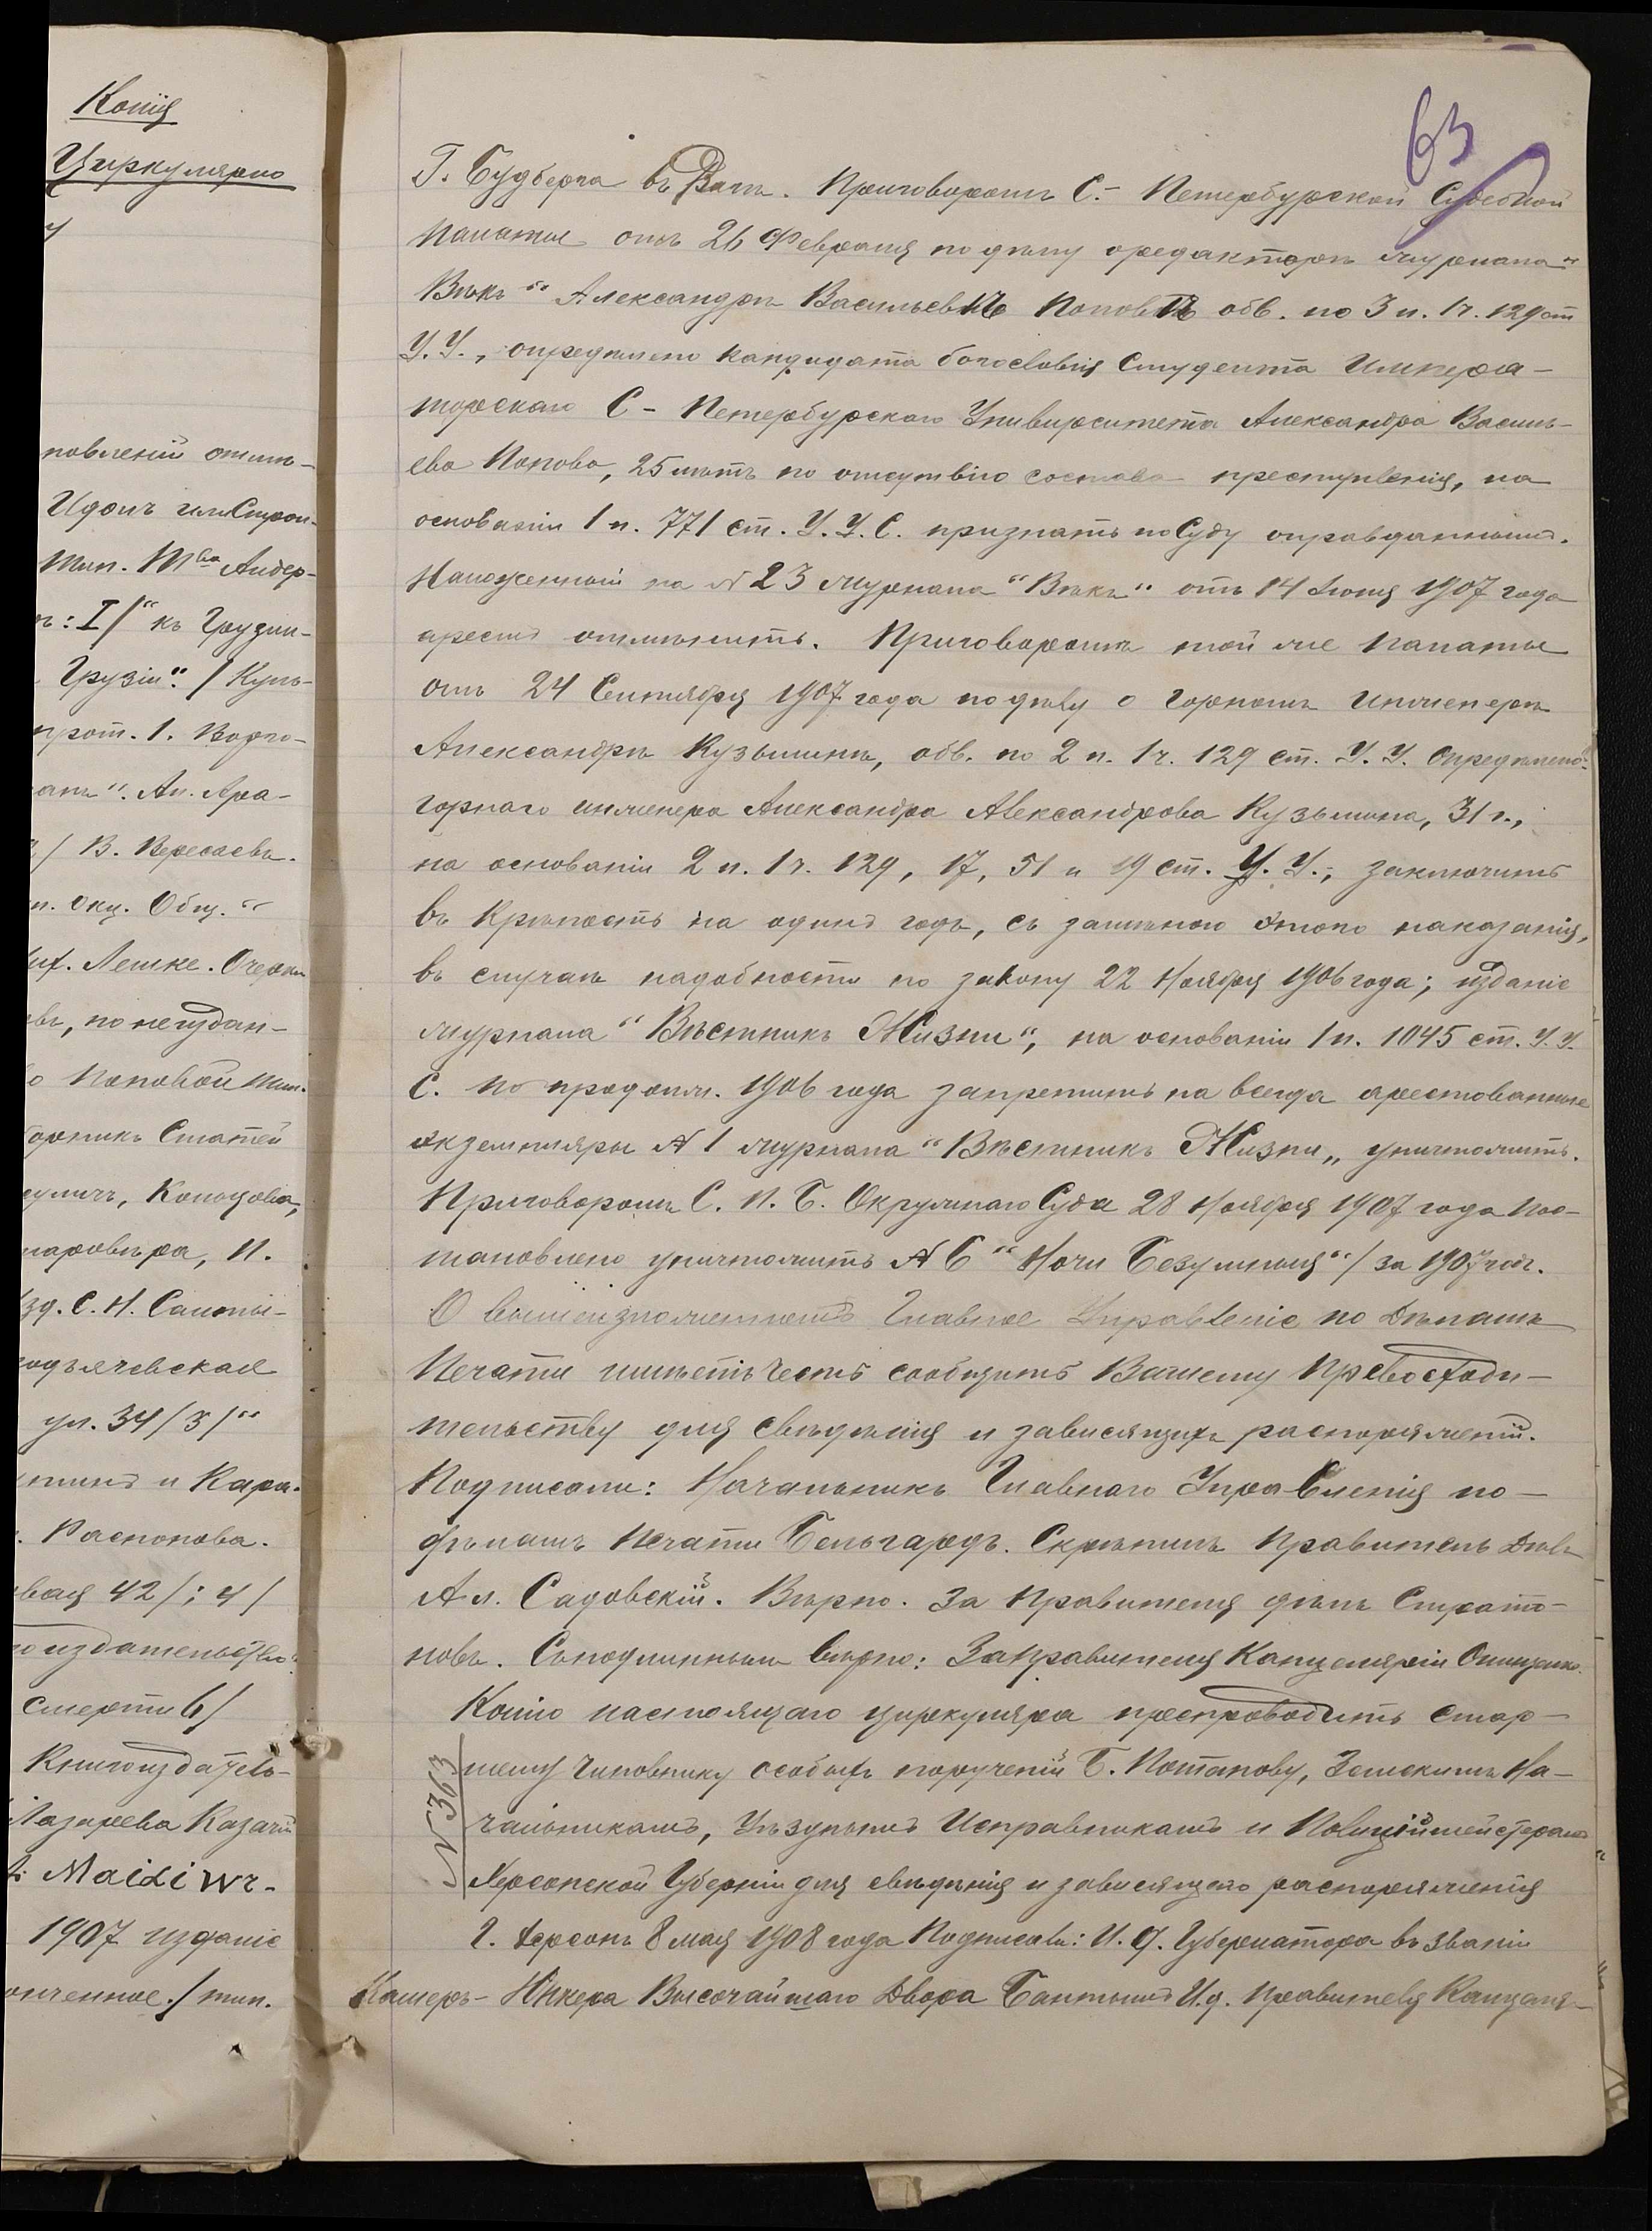 Копія
Циркулярно
у
новленій отмѣ-
Идонъ или Строи-
тип. Тва Андер-
I/" къ Грузин-
Грузіи". / Куль-
прот. 1. Ворго-
ань". Ан. Ара-
/ В. Вересаевъ.
п. Окц. Общ."
Лемке. Очерки
въ, по неиздан-
о Поповой тип.
борникъ Статей
сулич, Кольцова,
таровѣра, П.
зд. С. Н. Салты-
Подъяческая
ул. 34 / 3 /"
тинъ и Кара-
. Распопова.
вая 42 / ; 4 /
издательство
смерти 6 /
Книгоиздатель-
Лазарева Казачій
Maidi wr-
1907 изданіе
онченное. / тип.
63
Г. Будберга въ Валк. Приговоромъ С.- Петербургской Судебной
Палаты отъ 26 Февраля по дѣлу о редакторѣ журнала "
Вѣкъ" Александрѣ Васильевѣ Поповѣ обв. по 3 п. 1 ч. 129 ст
У. У., опредѣлено кандидата богословія Студента Импера-
торскаго С - Петербургскаго Университета Александра Василь-
ева Попова, 25 лѣтъ по отсутвію состава преступленія, на
основаніи 1 п. 771 ст. У. У. С. признать по Суду оправданнымъ.
Наложенный на № 23 журнала "Вѣкъ" отъ 14 Іюня 1907 года
арестъ отмѣнить. Приговоромъ той же Палаты
отъ 24 Сентября 1907 года по дѣлу о горномъ инженерѣ
Александрѣ Кузьминѣ, обв. по 2 п. 1 ч. 129 ст. У. У. Опредѣлено:
горнаго инженера Александра Александрова Кузьмина, 31 г.,
на основаніи 2 п. 1 ч. 129, 17, 51 и 19 ст. У. У., заключить
въ Крѣпость на одинъ годъ, съ замѣною этого наказанія,
въ случаѣ надобности по закону 22 Ноября 1906 года; изданіе
журнала "Вѣстникъ Жизни", на основаніи 1 п. 1045 ст. У. У.
С. по продолж. 1906 года запретить на всегда арестованные
экземпляры № 1 журнала "Вѣстникъ Жизни„ уничтожить.
Приговоромъ С. П. Б. Окружнаго Суда 28 Ноября 1907 года пос-
тановлено уничтожить № 6 "Ночи Безумныя" / за 1907 год.
О вышеизложенномъ Главное Управленіе по Дѣламъ
Печати имѣетъ честь сообщить Вашему Превосходи-
тельству для свѣдѣнія и зависящихъ распоряженій.
Подписали: Начальникъ Главнаго Управленія по -
дѣламъ Печати Бельгардъ. Скрѣпилъ Правитель Дѣлъ
Ал. Садовскій. Вѣрно. За Правителя дѣлъ Страто-
новъ. Съ подлиннымъ вѣрно: За Правителя Канцеляріи Онищенко.
Копію настоящаго циркуляра препроводить Стар-
шему Чиновнику особыхъ порученій Б. Потапову, Земскимъ На-
чальникамъ, Уѣзднымъ Исправникамъ и Полиціймейстерамъ
Херсонской Губерніи для свѣдѣнія и зависящаго распоряженія
г. Херсонъ 8 мая 1908 года Подписали: И. д. Губернатора въ званіи
Камеръ - Юнкера Высочайшаго Двора Бантышъ И. д. Правителя Канцеля-
№ 363